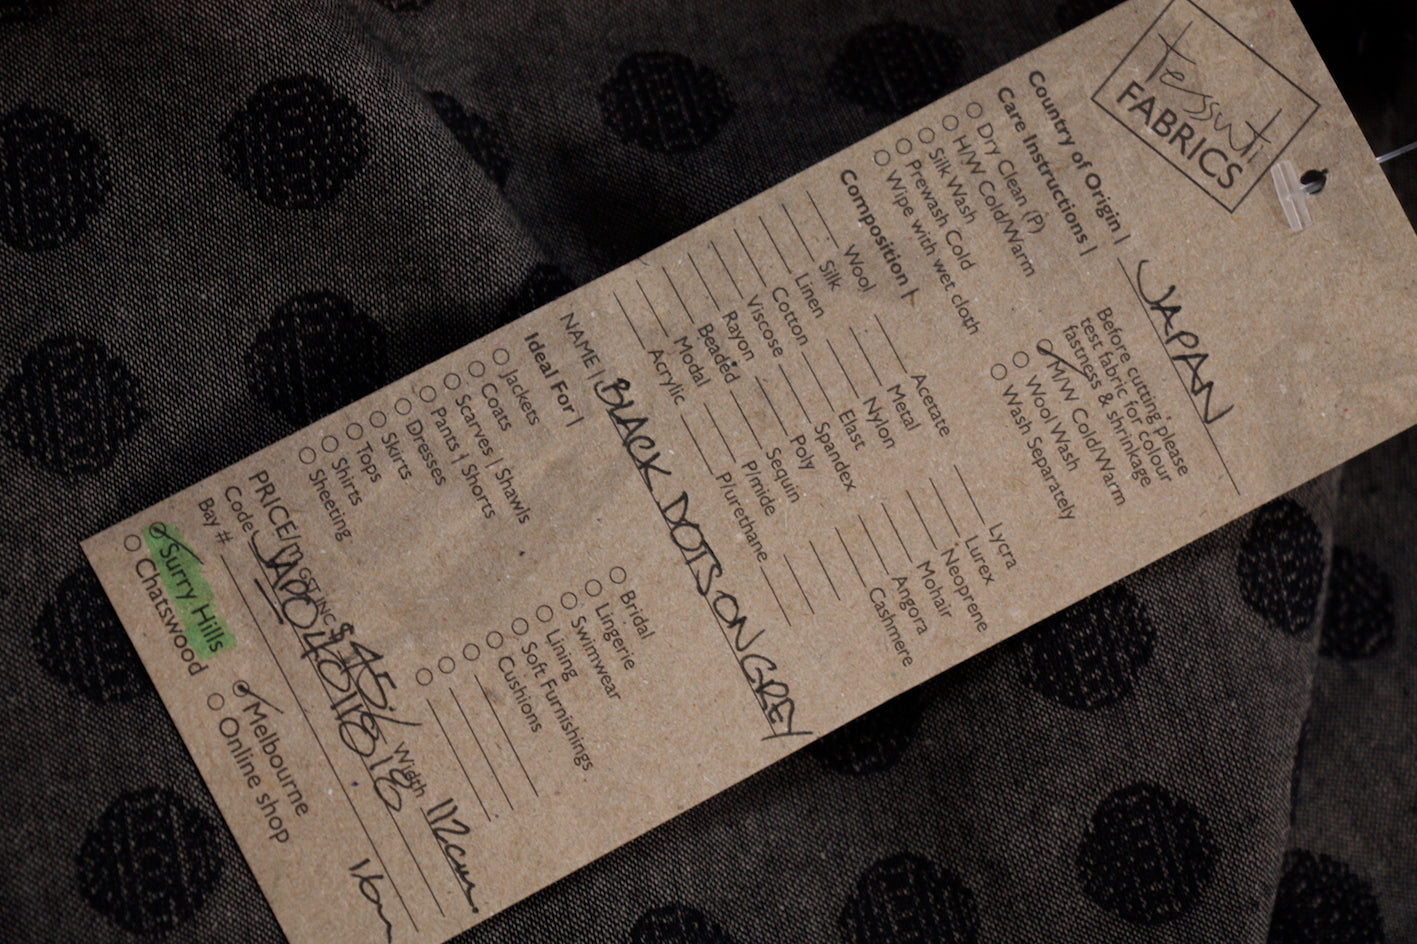 tessuti
FABRICS
Country of Origin | JAPAN
Care Instructions |
Before cutting please
test fabric for colour
fastness & shrinkage
Dry Clean (P)
M/W Cold/Warm
H/W Cold/Warm
Wool Wash
Silk Wash
Wash Separately
Prewash Cold
Wipe with wet cloth
Composition |
Wool Acetate Lycra
Silk Metal Lurex
Linen Nylon Neoprene
Cotton Elast Mohair
Viscose Spandex Angora
Rayon Poly Cashmere
Beaded Sequin
Modal P/mide
Acrylic P/urethane
NAME | BLACK DOTS ON GREY
Ideal For |
Jackets Bridal
Coats Lingerie
Scarves | Shawls Swimwear
Pants | Shorts Lining
Dresses Soft Furnishings
Skirts Cushions
Tops
Shirts
Sheeting
PRICE/m GST INC $45/ Width 112cm
Code
Bay # 1.6m
Surry Hills Melbourne
Chatswood Online shop